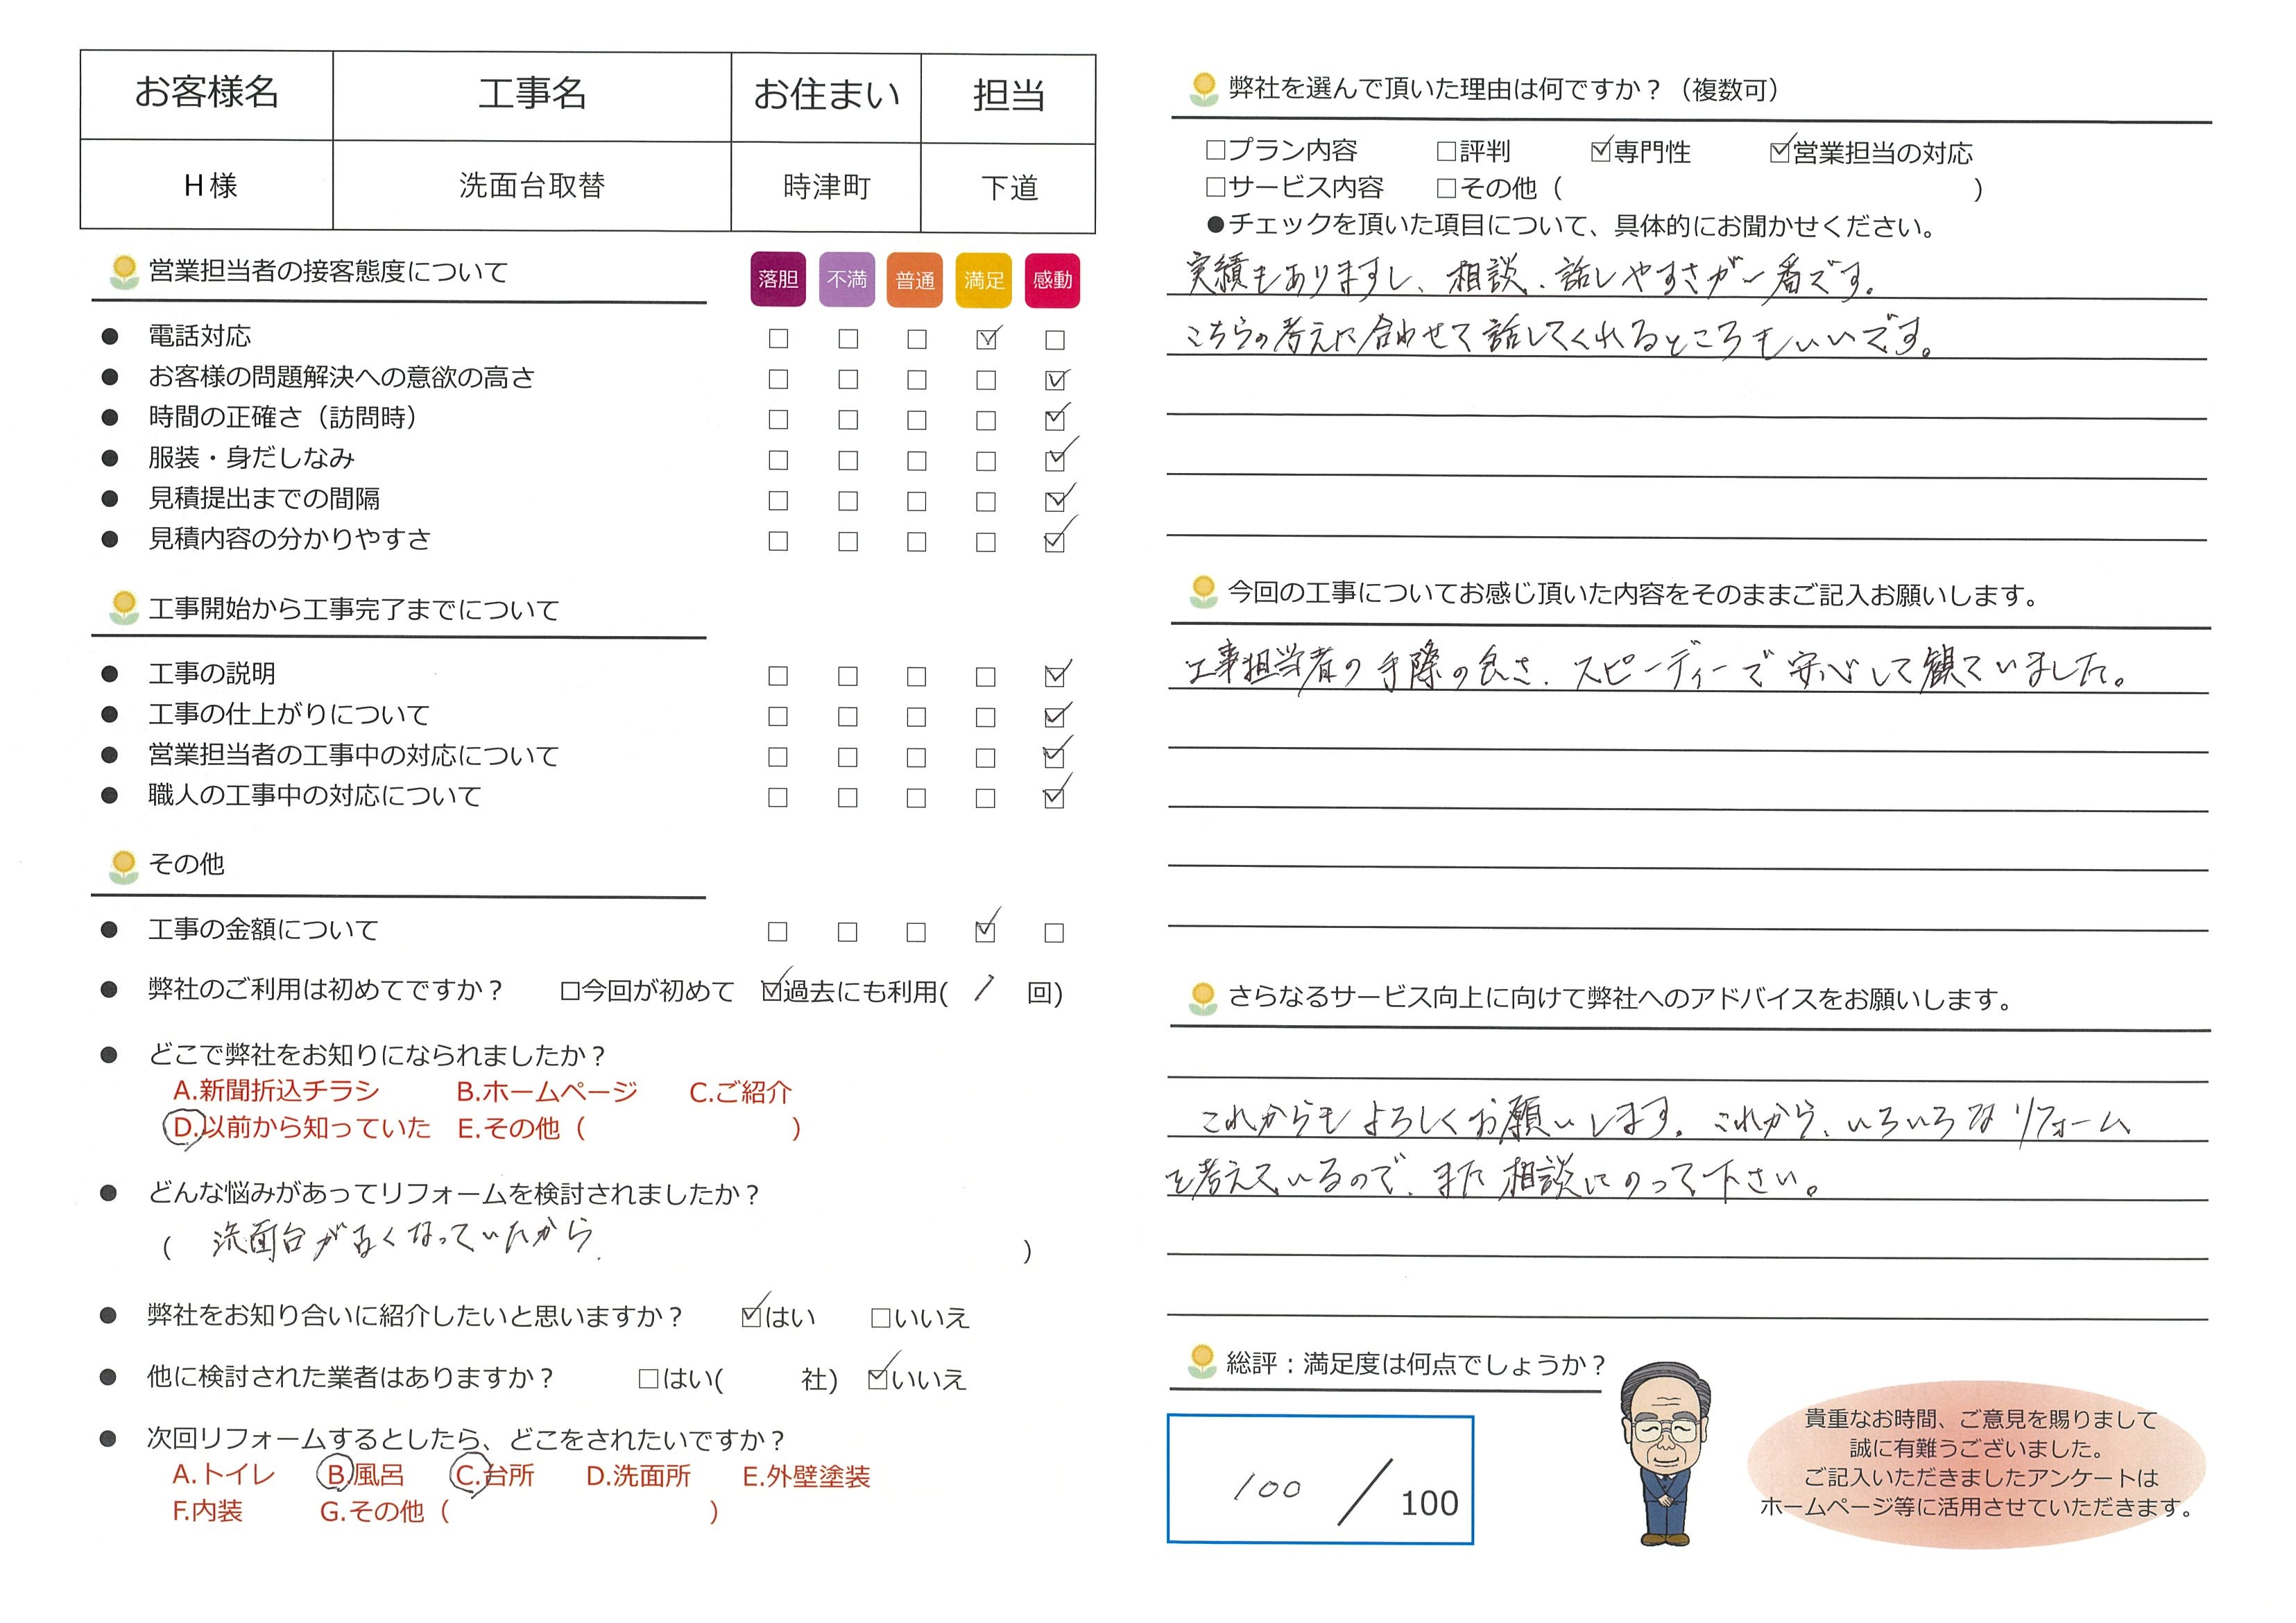 お客様名 工事名 お住まい 担当
H様 洗面台取替 時津町 下道
営業担当者の接客態度について 落胆 不満 普通 満足 感動
● 電話対応 □ □ □ ☑ □
● お客様の問題解決への意欲の高さ □ □ □ □ ☑
● 時間の正確さ（訪問時） □ □ □ □ ☑
● 服装・身だしなみ □ □ □ □ ☑
● 見積提出までの間隔 □ □ □ □ ☑
● 見積内容の分かりやすさ □ □ □ □ ☑
工事開始から工事完了までについて
● 工事の説明 □ □ □ □ ☑
● 工事の仕上がりについて □ □ □ □ ☑
● 営業担当者の工事中の対応について □ □ □ □ ☑
● 職人の工事中の対応について □ □ □ □ ☑
その他
● 工事の金額について □ □ □ ☑ □
● 弊社のご利用は初めてですか？ □今回が初めて ☑過去にも利用( 1 回)
● どこで弊社をお知りになられましたか？
A.新聞折込チラシ B.ホームページ C.ご紹介
D.以前から知っていた E.その他（ ）
● どんな悩みがあってリフォームを検討されましたか？
（ 洗面台が古くなっていたから. ）
● 弊社をお知り合いに紹介したいと思いますか？ ☑はい □いいえ
● 他に検討された業者はありますか？ □はい( 社) ☑いいえ
● 次回リフォームするとしたら、どこをされたいですか？
A.トイレ B.風呂 C.台所 D.洗面所 E.外壁塗装
F.内装 G.その他（ ）
弊社を選んで頂いた理由は何ですか？（複数可）
□プラン内容 □評判 ☑専門性 ☑営業担当の対応
□サービス内容 □その他（ ）
●チェックを頂いた項目について、具体的にお聞かせください。
実績もありますし、相談、話しやすさが一番です。
こちらの考えに合わせて話してくれるところもいいです。
今回の工事についてお感じ頂いた内容をそのままご記入お願いします。
工事担当者の手際の良さ、スピーディーで安心して観ていました。
さらなるサービス向上に向けて弊社へのアドバイスをお願いします。
これからもよろしくお願いします。これから、いろいろなリフォーム
を考えているので、また相談にのって下さい。
総評：満足度は何点でしょうか？
100 / 100
貴重なお時間、ご意見を賜りまして
誠に有難うございました。
ご記入いただきましたアンケートは
ホームページ等に活用させていただきます。